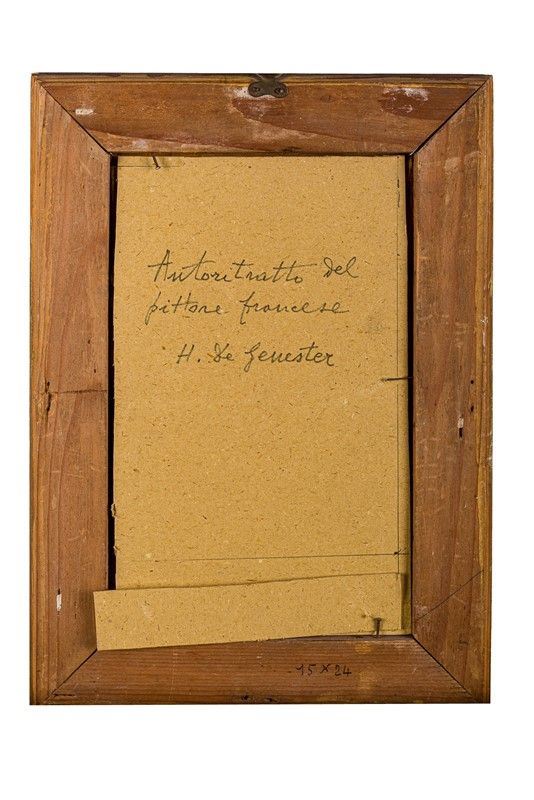 Autoritratto del
pittore francese
H. De Genester
15 x 24